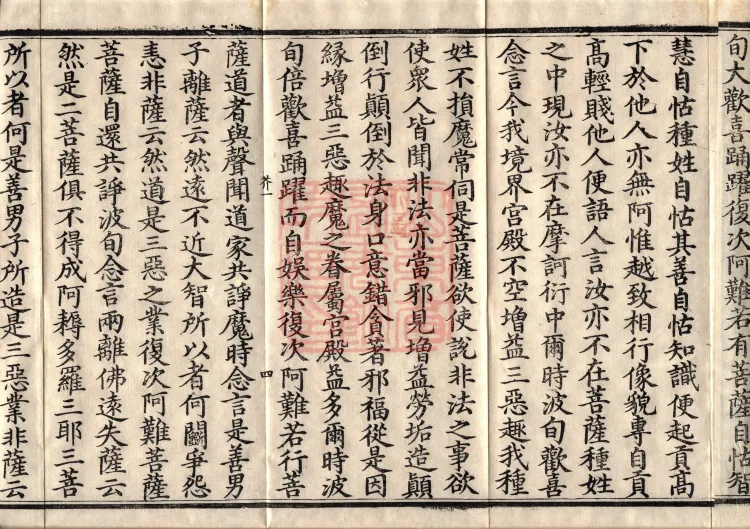 旬大歡喜踊躍復次阿難若有菩薩自怙智
慧自怙種姓自怙其善自怙知識便起貢高
下於他人亦無阿惟越致相行像貌專自貢
高輕賤他人便語人言汝亦不在菩薩種姓
之中現汝亦不在摩訶衍中爾時波旬歡喜
念言今我境界宮殿不空增益三惡趣我種
姓不損魔常伺是菩薩欲使說非法之事欲
使衆人皆聞非法亦當邪見增益勞垢造顛
倒行顛倒於法身口意錯貪著邪福從是因
縁增益三惡趣魔之眷屬宮殿益多爾時波
旬倍歡喜踊躍而自娛樂復次阿難若行菩
芥一
四
薩道者與聲聞道家共諍魔時念言是善男
子離薩云然遠不近大智所以者何鬭爭怨
恚非薩云然道是三惡之業復次阿難菩薩
菩薩自還共諍波旬念言兩離佛遠失薩云
然是二菩薩俱不得成阿耨多羅三耶三菩
所以者何是善男子所造是三惡業非薩云